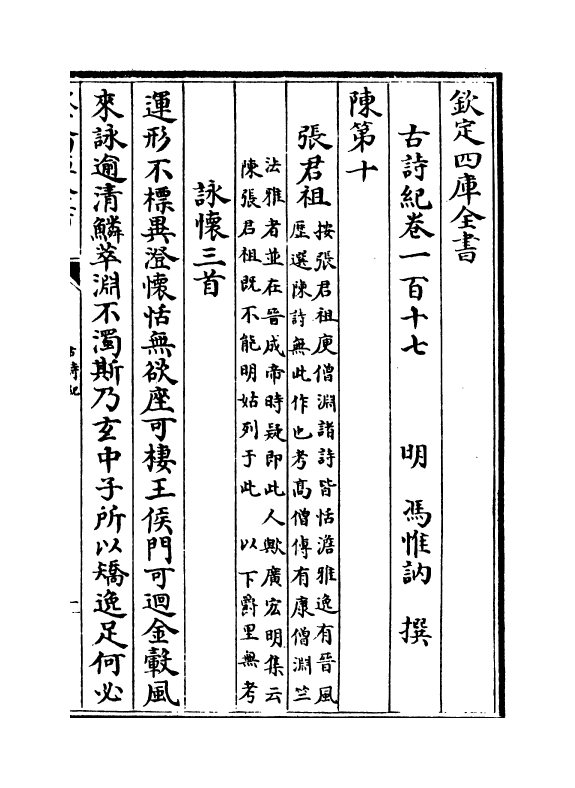 欽定四庫全書
古詩紀卷一百十七　明　馮惟訥　撰
陳第十
張君祖
按張君祖庾僧淵諸詩皆恬澹雅逸有晉風
歷選陳詩無此作也考高僧傳有康僧淵竺
法雅者並在晉成帝時疑即此人歟廣宏明集云
陳張君祖既不能明姑列于此　以下爵里無考
詠懷三首
運形不標異澄懷恬無欲座可棲王侯門可迴金轂風
來詠逾清鱗萃淵不濁斯乃玄中子所以矯逸足何必
古詩紀